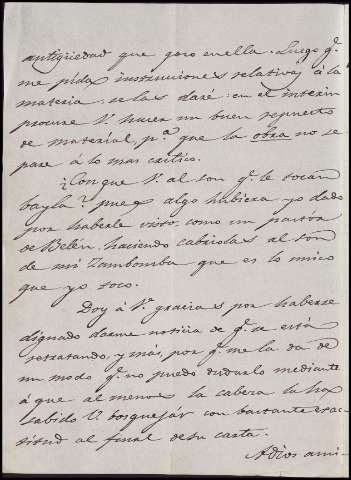 antigüedad que gozo en ella. Luego q.e
me pida instrucciones relativas á la
materia, se las daré: en el interin
procure V. hacer un buen repuesto
de material, p.a que la obra no se
pare á lo mas critico.
¿Con que V. al son q.e le tocan
bayla? pues algo hubiera yo dado
por haberle visto, como un pastor
de Belén, haciendo cabriolas al son
de mi Zambomba que es lo unico
que yo toco.
Doy á V. gracias por haberse
dignado darme noticia de q.e se está
retratando, y más, por q.e me la da de
un modo q.e no puedo dudarlo mediante
á que al menos la cabeza la ha
sabido V. bosquejár con bastante exac-
titud al final de su carta.
Adios ami-